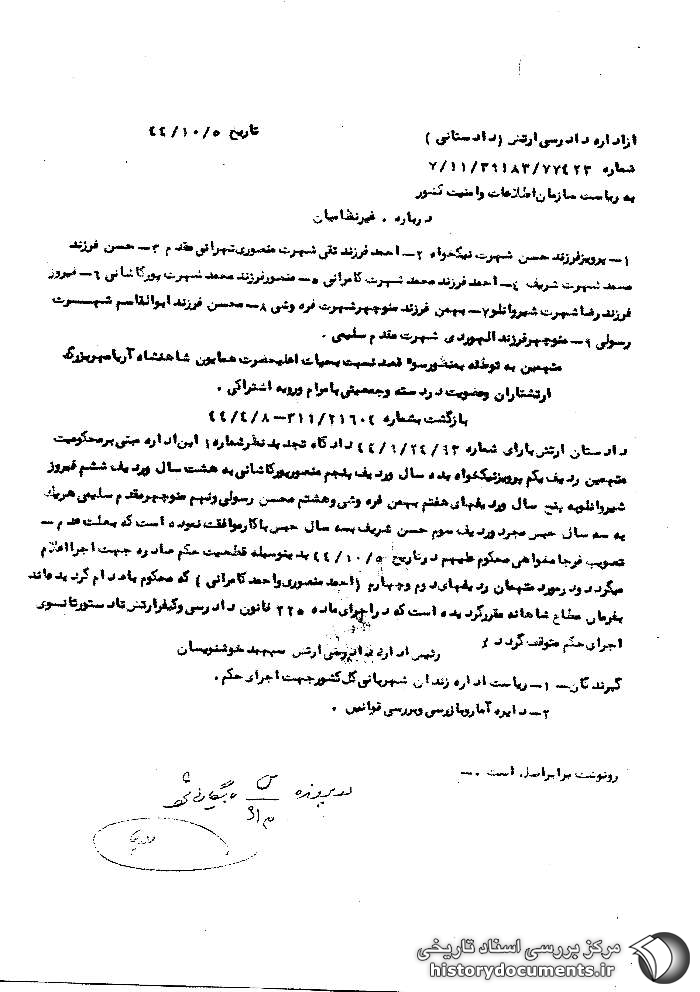 از اداره دادرسی ارتش (دادستانی) تاریخ ۴۴/۱۰/۵
شماره ۷/۱۱/۳۹۱۸۳/۷۷۴۲۳
به ریاست سازمان اطلاعات وامنیت کشور
درباره . غیرنظامیان
۱- پرویزفرزند حسن شهرت نیکخواه ۲- احمد فرزند تقی شهرت منصوری تهرانی مقدم ۳- حسن فرزند
صمد شهرت شریف ۴- احمد فرزند محمد شهرت کامرانی ۵- منصورفرزند محمد شهرت پورکاشانی ۶- فیروز
فرزند رضا شهرت شیروانلو ۷- بهمن فرزند منوچهرشهرت فره وشی ۸- محسن فرزند ابوالقاسم شهرت
رسولی ۹- منوچهرفرزند الهوردی شهرت مقدم سلیمی .
متهمین به توطئه بمنظورسو' قصد نسبت بحیات اعلیحضرت همایون شاهنشاه آریامهربزرگ
ارتشتاران وعضویت دردسته وجمعیتی بامرام ورویه اشتراکی .
بازگشت بشماره ۳۱۱/۲۱۶۰۲-۴۴/۴/۸
دادستان ارتش بارای شماره ۴۴/۹/۲۴/۶۳ دادگاه تجدید نظرشماره ۱ این اداره مبنی برمحکومیت
متهمین ردیف یکم پرویزنیکخواه بده سال وردیف پنجم منصورپورکاشانی به هشت سال وردیف ششم فیروز
شیروانلوبه پنج سال وردیفهای هفتم بهمن فره وشی وهشتم محسن رسولی ونهم منوچهرمقدم سلیمی هریک
به سه سال حبس مجرد وردیف سوم حسن شریف بسه سال حبس باکارموافقت نموده است که بعلت عدم -
تصویب فرجامخواهی محکوم علیهم درتاریخ ۴۴/۱۰/۵ بدینوسیله قطعیت حکم صادره جهت اجرا اعلام
میگردد ودرمورد متهمان ردیفهای دوم وچهارم (احمد منصوری واحمد کامرانی) که محکوم باعدام گردیده اند
بفرمان مطاع شاهانه مقررگردیده است که دراجرای ماده ۲۲۵ قانون دادرسی وکیفرارتش تادستورثانوی
اجرای حکم متوقف گردد
رئیس اداره دادرسی ارتش سپهبد خوشنویسان
گیرندگان- ۱- ریاست اداره زندان شهربانی کل کشورجهت اجرای حکم .
۲- دایره آماروبازرسی وبررسی قوانین .
رونوشت برابراصل است .-
در پرونده
مرکز بررسی اسناد تاریخی
historydocuments.ir